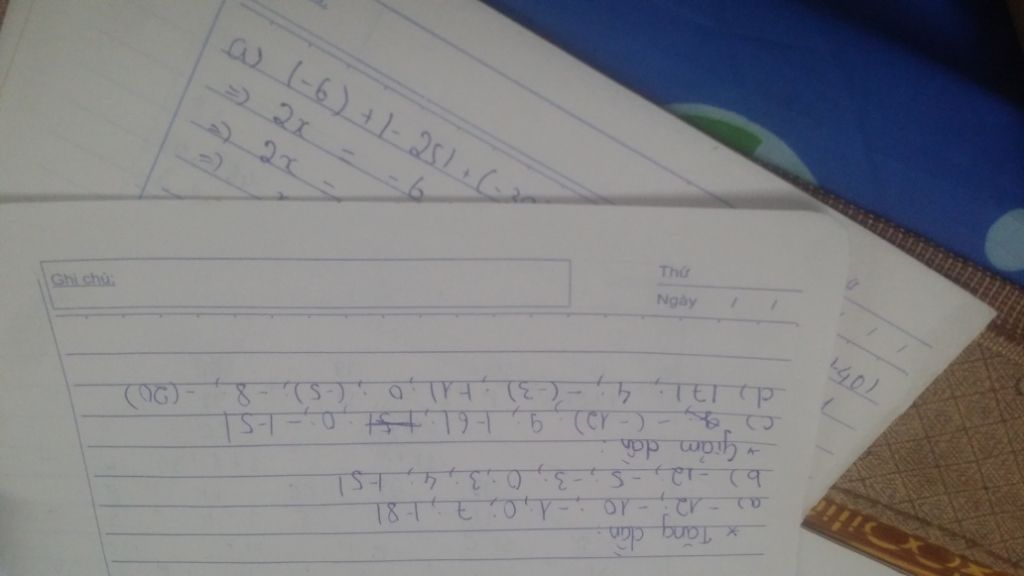 a) (-6) + |-25| + (-30
=> 2x = -6
=> 2x =
=>
Ghi chú:
Thứ
Ngày / /
* Tăng dần:
a) -12; -10; -1; 0; 7; |-8|
b) -12; -5; -3; 0; 3; 4; |-5|
* Giảm dần:
c) -(-12); 9; |-6|; 0; -|-5|
d) |7|; 4; -(-3); |-1|; 0; (-5); -8; -(20)